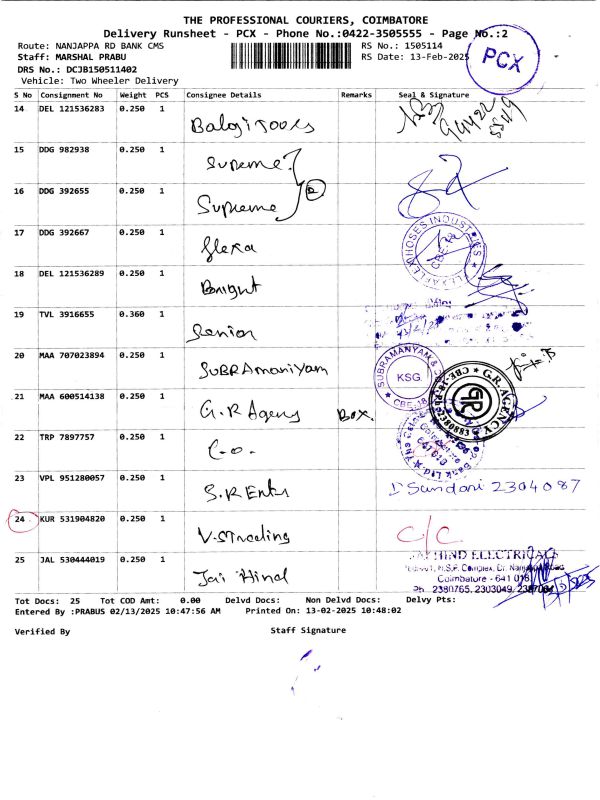 THE PROFESSIONAL COURIERS, COIMBATORE
Delivery Runsheet - PCX - Phone No.:0422-3505555 - Page No.:2
Route: NANJAPPA RD BANK CMS RS No.: 1505114
Staff: MARSHAL PRABU RS Date: 13-Feb-2025
PCX
DRS No.: DCJB150511402
Vehicle: Two Wheeler Delivery
S No Consignment No Weight PCS Consignee Details Remarks Seal & Signature
14 DEL 121536283 0.250 1 Balaji Tools
15 DDG 982938 0.250 1 Supreme
16 DDG 392655 0.250 1 Supreme 2
17 DDG 392667 0.250 1 flexa
HOSES INDUSTRIES CBE-18
18 DEL 121536289 0.250 1 Bright
19 TVL 3916655 0.360 1 Senior
20 MAA 707023894 0.250 1 SUBRAmaniyam
SUBRAMANYAM & KSG. CBE-18
21 MAA 600514138 0.250 1 G.R Agency Box.
G.R. AGENCY GR CBE-18 Ph:2380883
22 TRP 7897757 0.250 1 C.o.
23 VPL 951280057 0.250 1 S.R Ents Sundari 2304087
24 KUR 531904820 0.250 1 V.S Trading C/C
25 JAL 530444019 0.250 1 Jai Hind
JAI HIND ELECTRICALS
H.S.P. Complex, Dr. Nanjappa Road
Coimbatore - 641 018
Ph 2380765, 2303049,
Tot Docs: 25 Tot COD Amt: 0.00 Delvd Docs: Non Delvd Docs: Delvy Pts:
Entered By :PRABUS 02/13/2025 10:47:56 AM Printed On: 13-02-2025 10:48:02
Verified By Staff Signature